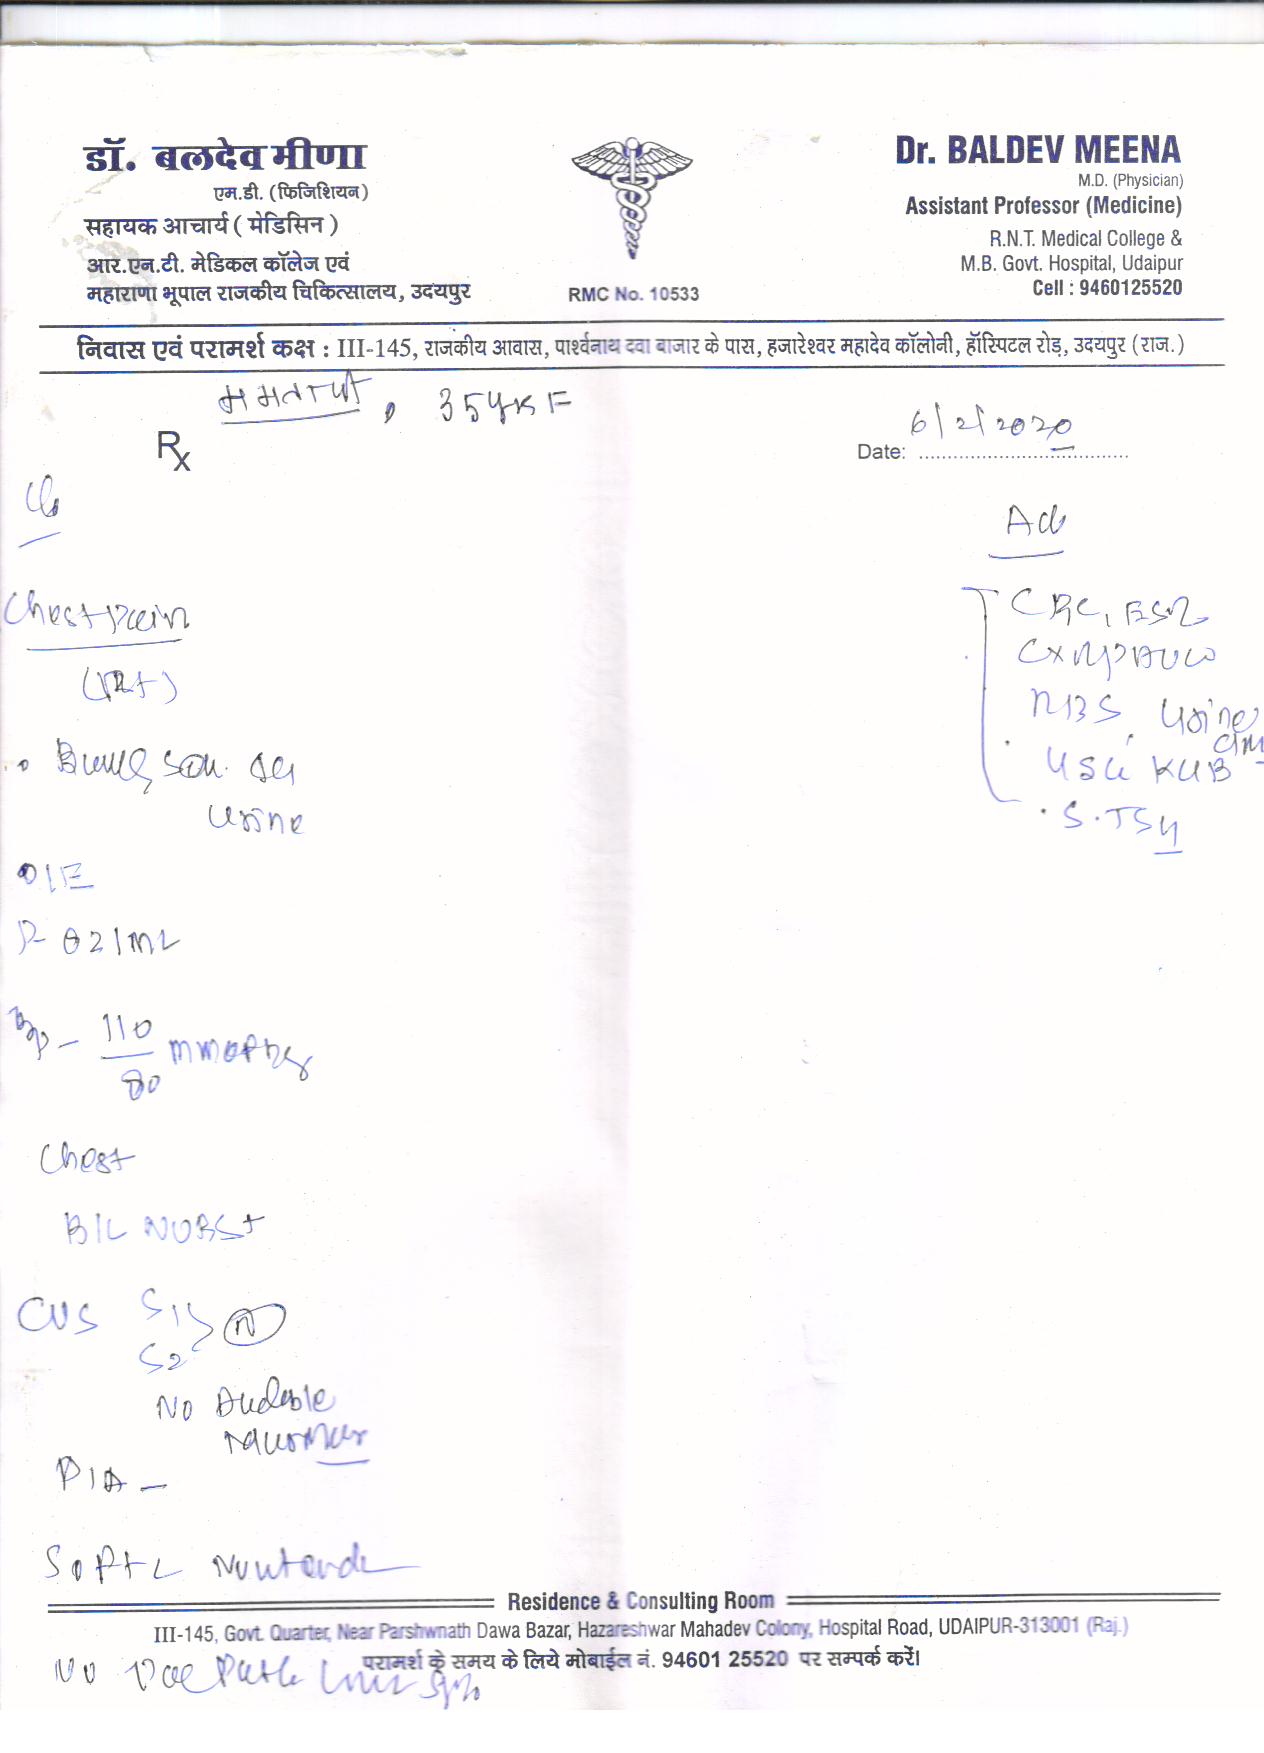 डॉ. बलदेव मीणा
एम.डी. (फिजिशियन)
सहायक आचार्य ( मेडिसिन )
आर.एन.टी. मेडिकल कॉलेज एवं
महाराणा भूपाल राजकीय चिकित्सालय, उदयपुर
RMC No. 10533
Dr. BALDEV MEENA
M.D. (Physician)
Assistant Professor (Medicine)
R.N.T. Medical College &
M.B. Govt. Hospital, Udaipur
Cell : 9460125520
निवास एवं परामर्श कक्ष : III-145, राजकीय आवास, पार्श्वनाथ दवा बाजार के पास, हजारेश्वर महादेव कॉलोनी, हॉस्पिटल रोड़, उदयपुर (राज.)
35 yrs F
Rx
Date: 6/2/2020
C/o
Chest pain
(Rt)
Urine
O/E
P- 82/mt
BP - 110/80 mmofhg
Chest
B/L NVBS+
CVS S1 S2 N
No Audable
Murmur
P/A -
Soft
Adv
CBC, ESR
CXR PA VW
RBS Urine
USG KUB
S.TSH
Residence & Consulting Room
III-145, Govt. Quarter, Near Parshwnath Dawa Bazar, Hazareshwar Mahadev Colony, Hospital Road, UDAIPUR-313001 (Raj.)
परामर्श के समय के लिये मोबाईल नं. 94601 25520 पर सम्पर्क करें।
No